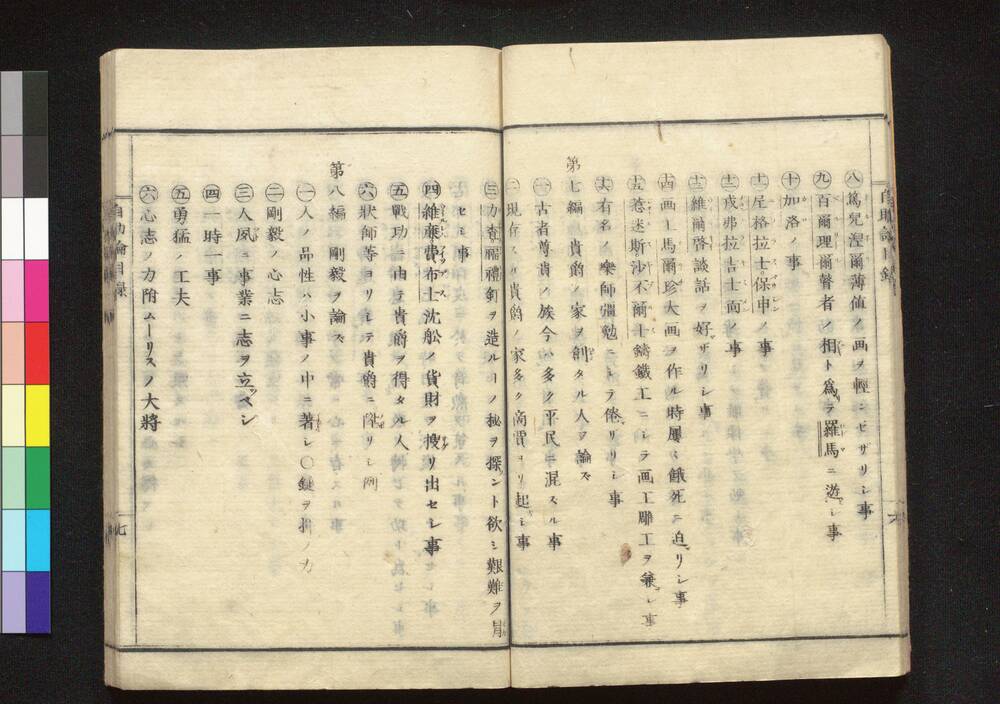 自助論目録
㊇ 篤兒涅爾薄値ノ画ヲ輕シゼザリシ事
㊈ 百爾理爾瞽者ノ相ト為テ羅馬ニ遊シ事
㊉ 加洛ノ事
十一 屋格拉士保申ノ事
十二 戎弗拉吉士面ノ事
十三 維爾啓談話ヲ好ザリシ事
十四 画工馬爾珍大画ヲ作ル時屢々餓死ニ迫リシ事
十五 惹迷斯沙不爾士鑄鐵工ニシテ画工雕工ヲ兼シ事
十六 有名ノ樂師彊勉ニシテ倦ザリシ事
第七編 貴爵ノ家ヲ創タル人ヲ論ズ
㊀ 古者尊貴ノ族今ハ多ク平民ニ混ズル事
㊁ 現存スル貴爵ノ家多ク商賈ヨリ起シ事
㊂ 力查福禮釘ヲ造ルノ秘ヲ探ント欲シ艱難ヲ冒
セシ事
㊃ 維廉費布士沈舩ノ貨財ヲ搜リ出セシ事
㊄ 戰功ニ由テ貴爵ヲ得タル人
㊅ 狀師等ヨリシテ貴爵ニ陞リシ例
第八編 剛毅ヲ論ズ
㊀ 人ノ品性ハ小事ノ中ニ著シ〇鎚ヲ揮ノ力
㊁ 剛毅ノ心志
㊂ 人夙ニ事業ニ志ヲ立ベシ
㊃ 一時一事
㊄ 勇猛ノ工夫
㊅ 心志ノ力附ムーリスノ大將
自助論目録
七